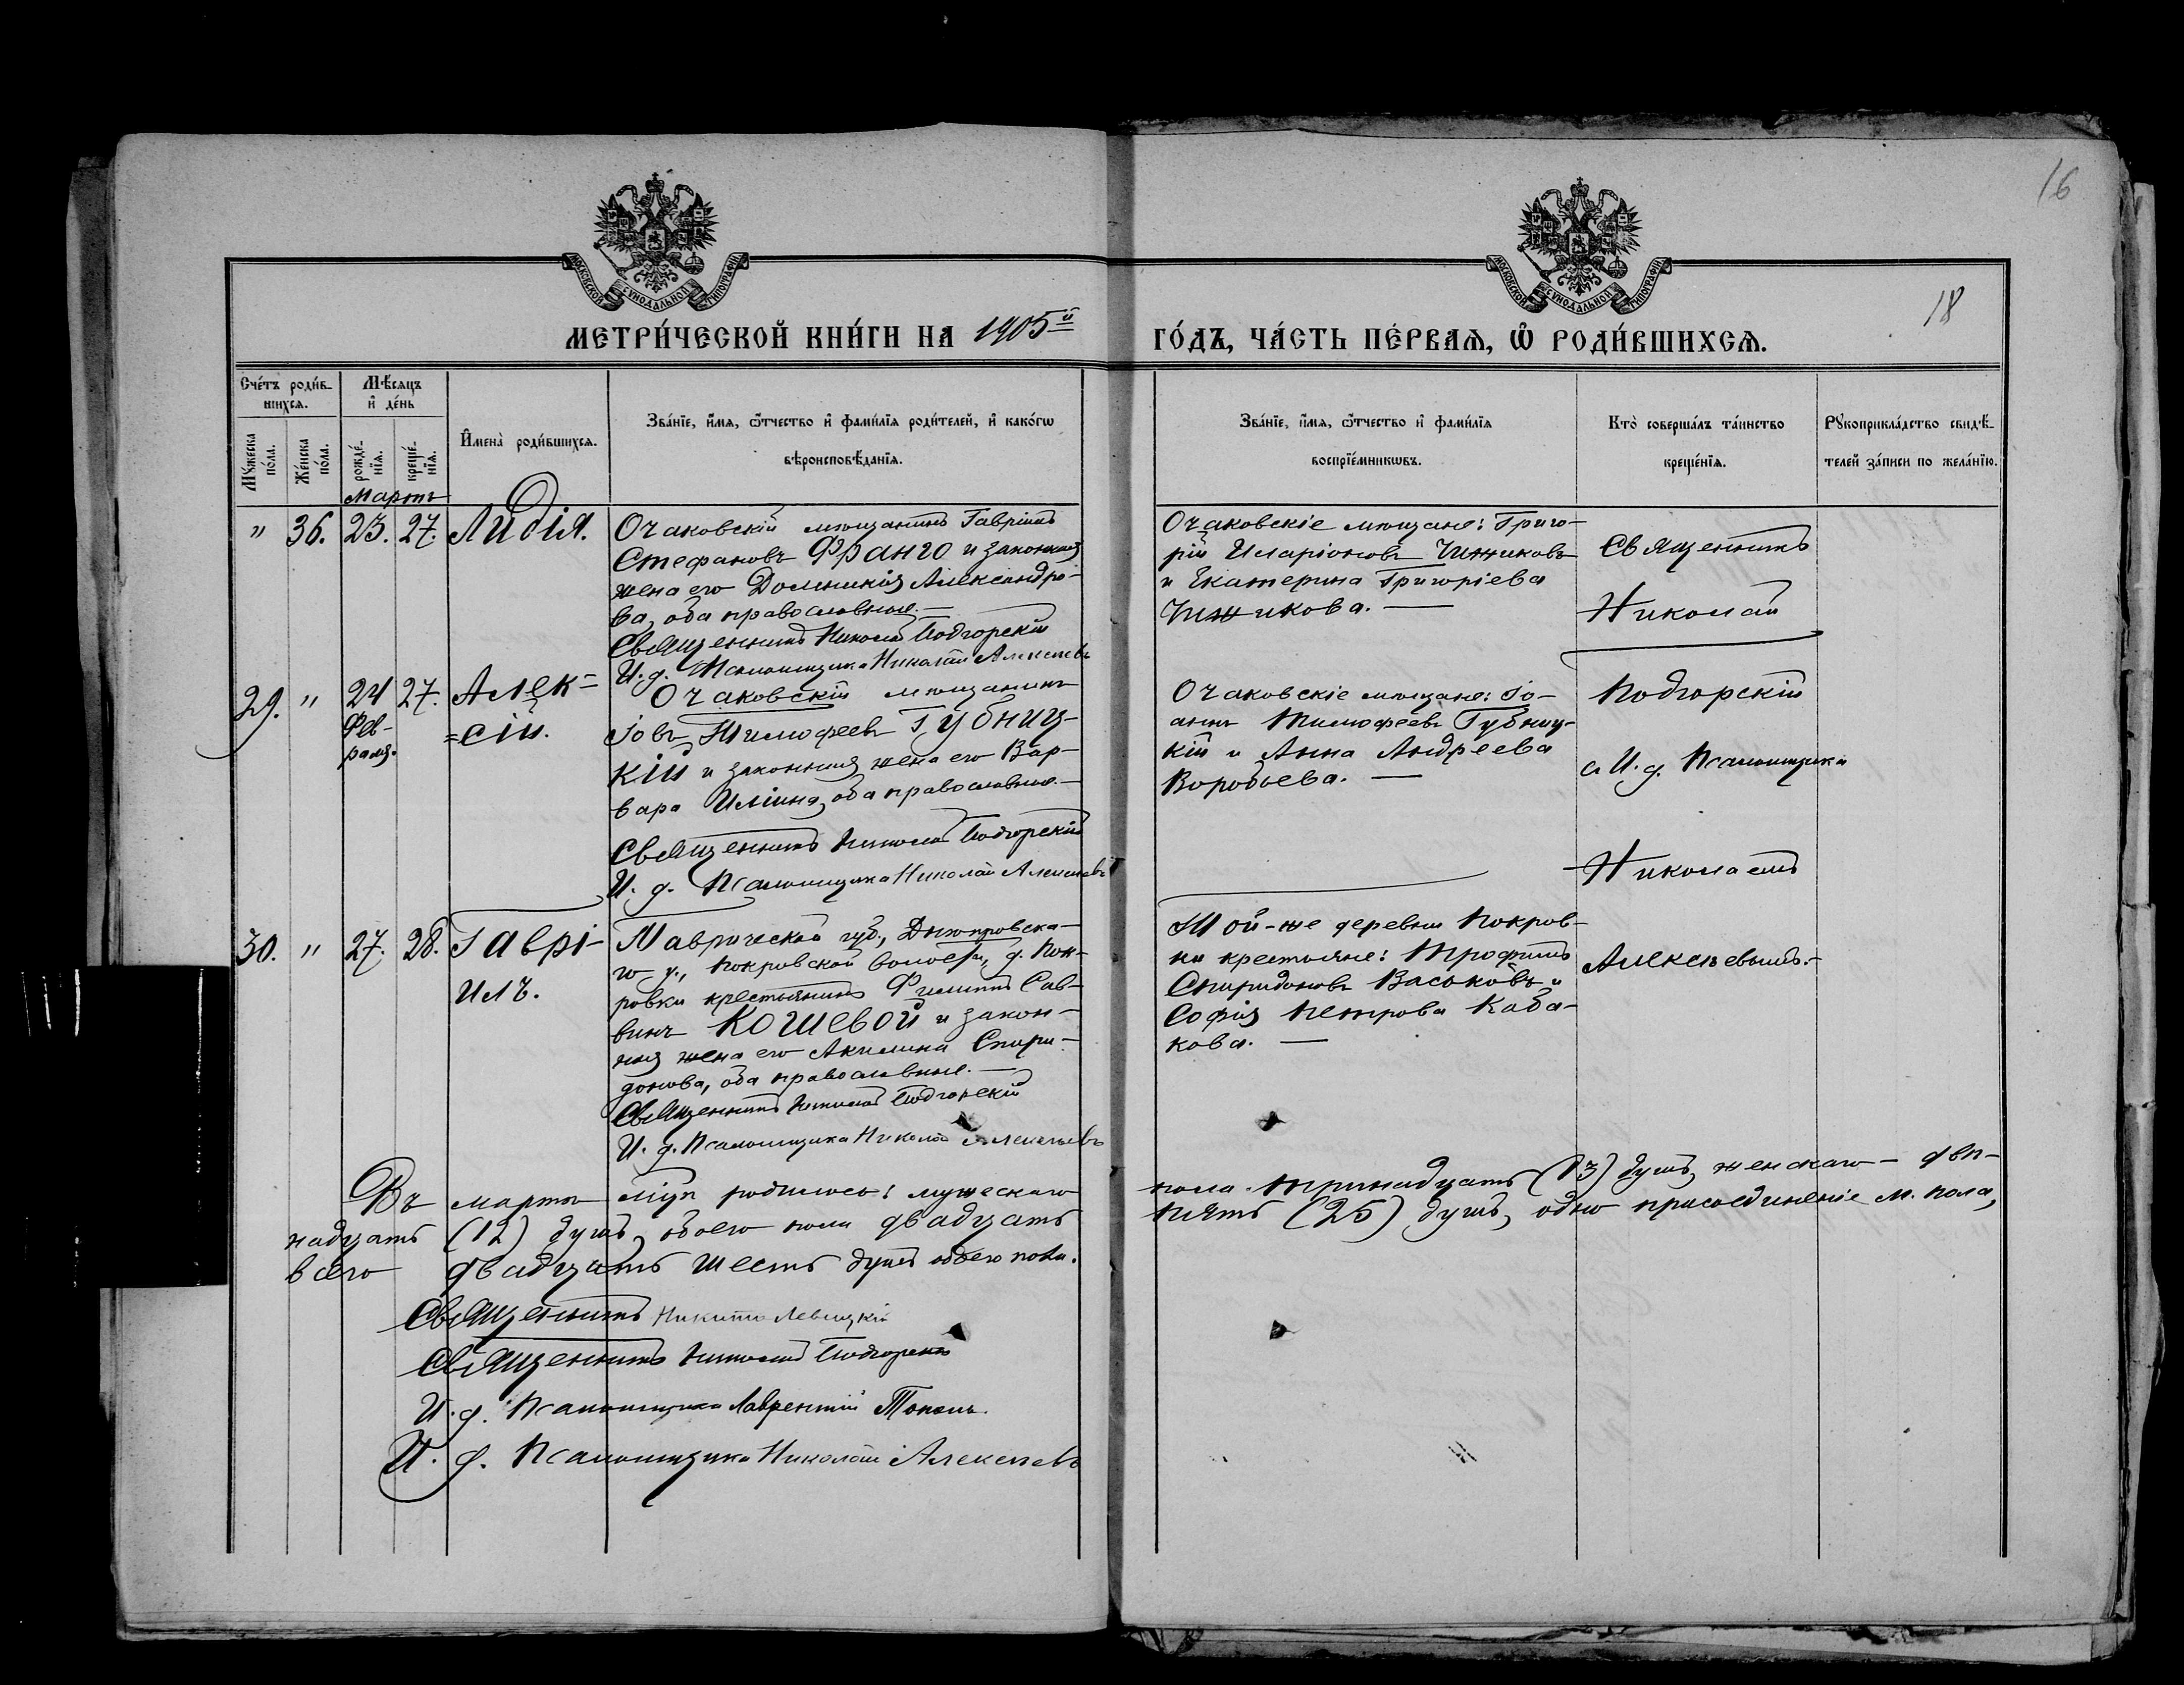 16
18
МОСКОВСКОЙ СѴНОДАЛЬНОЙ ТИПОГРАФІИ
МОСКОВСКОЙ СѴНОДАЛЬНОЙ ТИПОГРАФІИ
МЕТРИ́ЧЕСКОЙ КНИ́ГИ НА 1905й ГО́ДЪ, ЧА́СТЬ ПЕ́РВАѦ, Ѽ РОДИ́ВШИХСѦ.
Сче́тъ роди́в-
шихсѧ.
Мꙋ́жеска по́ла.
Же́нска по́ла.
Мѣ́сѧцъ
и҆ де́нь
рожде́-
нїѧ.
креще́-
нїѧ.
И҆мена̀ роди́вшихсѧ.
Зва́нїе, и҆́мѧ, ѻ҆́тчество и҆ фами́лїѧ роди́телей, и҆ како́гѡ
вѣроисповѣ́данїѧ.
Зва́нїе, и҆́мѧ, ѻ҆́тчество и҆ фами́лїѧ
воспрїе́мникѡвъ.
Кто̀ соверша́лъ та́инство
креще́нїѧ.
Рꙋкоприкла́дство свидѣ́-
телей за́писи по жела́нїю.
Мартъ
" 36. 23. 27. Лидія.
Очаковскій мѣщанинъ Гавріилъ
Стефановъ Франго и законная
жена его Домникія Александро-
ва, оба православные.—
Священникъ Николай Подгорскій
И. д. Псаломщика Николай Алексѣевъ
Очаковскіе мѣщане: Григо-
рій Иларіоновъ Чижиковъ
и Екатерина Григоріева
Чижикова. —
Священникъ
Николай
Подгорскій
с И. д. Псаломщика
Николаемъ
Алексѣевымъ.-
29. " 24 Фев-
раля. 27. Алек=
=сій.
Очаковскій мѣщанинъ
Іовъ Тимофеевъ Губниц-
кій и законная жена его Вар-
вара Иліина, оба православные.—
Священникъ Николай Подгорскій
И. д. Псаломщика Николай Алексѣевъ
Очаковскіе мѣщане: Іо-
аннъ Тимофеевъ Губниц-
кій и Анна Андреева
Воробьева. —
30. " 27. 28. Гаврі-
илъ.
Таврической губ., Днѣпровска-
го у., Покровской волости, д. Пок-
ровки крестьянинъ Филиппъ Сав-
винъ Кошевой и закон-
ная жена его Акилина Спири-
донова, оба православные. —
Священникъ Николай Подгорскій
И. д. Псаломщика Николай Алексѣевъ
Той-же деревни Покров-
ки крестьяне: Трофимъ
Спиридоновъ Васьковъ и
Софія Петрова Каба-
кова. —
Въ мартѣ м-цѣ родилось: мужескаго пола - тринадцать (13) душъ, женскаго - две-
надцать (12) душъ, обоего пола двадцать пять (25) душъ, одно присоединеніе м. пола,
всего двадцать шесть душъ обоего пола.
Священникъ Никита Левицкій
Священникъ Николай Подгорскій
И. д. Псаломщика Лаврентій
И. д. Псаломщика Николай Алексѣевъ